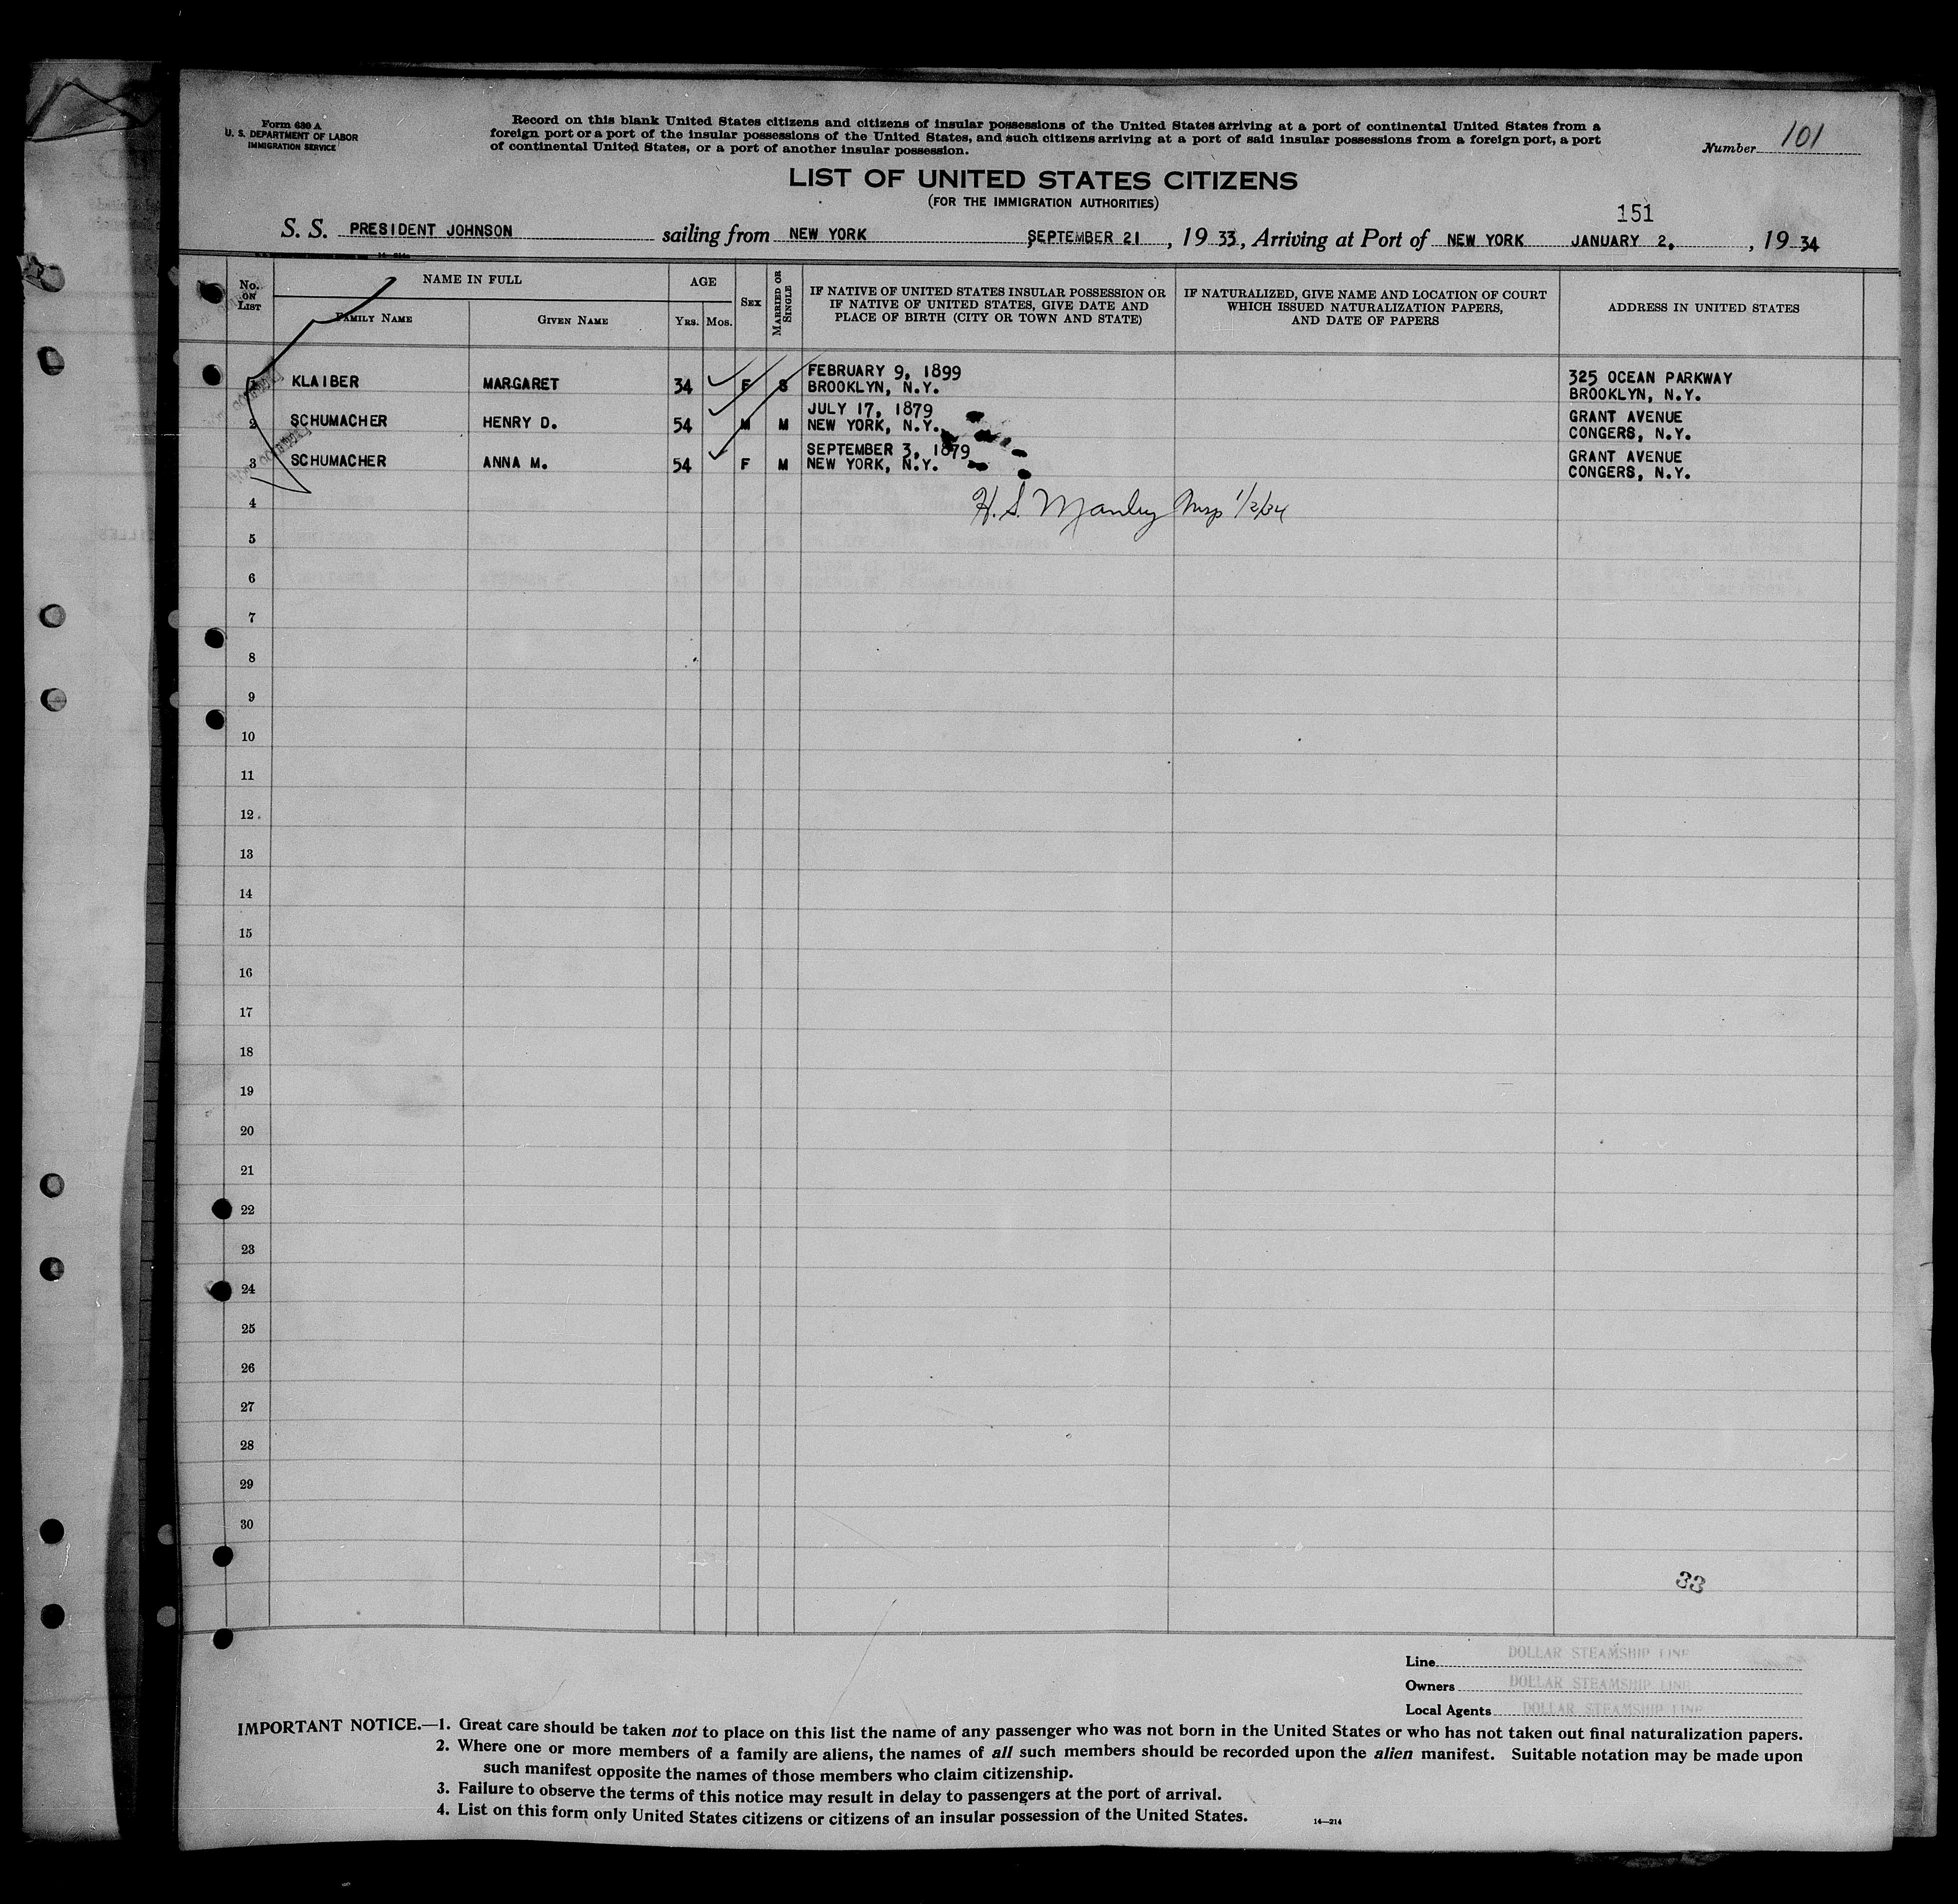 Form 630 A
U. S. DEPARTMENT OF LABOR
IMMIGRATION SERVICE
Record on this blank United States citizens and citizens of insular possessions of the United States arriving at a port of continental United States from a
foreign port or a port of the insular possessions of the United States, and such citizens arriving at a port of said insular possessions from a foreign port, a port
of continental United States, or a port of another insular possession.
Number 101
LIST OF UNITED STATES CITIZENS
(FOR THE IMMIGRATION AUTHORITIES)
151
S. S. PRESIDENT JOHNSON sailing from NEW YORK SEPTEMBER 21, 19 33, Arriving at Port of NEW YORK JANUARY 2, , 19 34
No. ON LIST
NAME IN FULL
FAMILY NAME
GIVEN NAME
AGE
YRS. MOS.
SEX
MARRIED OR SINGLE
IF NATIVE OF UNITED STATES INSULAR POSSESSION OR
IF NATIVE OF UNITED STATES, GIVE DATE AND
PLACE OF BIRTH (CITY OR TOWN AND STATE)
IF NATURALIZED, GIVE NAME AND LOCATION OF COURT
WHICH ISSUED NATURALIZATION PAPERS,
AND DATE OF PAPERS
ADDRESS IN UNITED STATES
1 KLAIBER MARGARET 34 F S FEBRUARY 9, 1899 325 OCEAN PARKWAY
BROOKLYN, N.Y. BROOKLYN, N.Y.
2 SCHUMACHER HENRY D. 54 M M JULY 17, 1879 GRANT AVENUE
NEW YORK, N.Y. CONGERS, N.Y.
3 SCHUMACHER ANNA M. 54 F M SEPTEMBER 3, 1879 GRANT AVENUE
NEW YORK, N.Y. CONGERS, N.Y.
4
H. S. Manley Insp 1/2/34
5
6
7
8
9
10
11
12
13
14
15
16
17
18
19
20
21
22
23
24
25
26
27
28
29
30
33
Line DOLLAR STEAMSHIP LINE
Owners DOLLAR STEAMSHIP LINE
Local Agents DOLLAR STEAMSHIP LINE
IMPORTANT NOTICE.—1. Great care should be taken not to place on this list the name of any passenger who was not born in the United States or who has not taken out final naturalization papers.
2. Where one or more members of a family are aliens, the names of all such members should be recorded upon the alien manifest. Suitable notation may be made upon
such manifest opposite the names of those members who claim citizenship.
3. Failure to observe the terms of this notice may result in delay to passengers at the port of arrival.
4. List on this form only United States citizens or citizens of an insular possession of the United States.
14—214